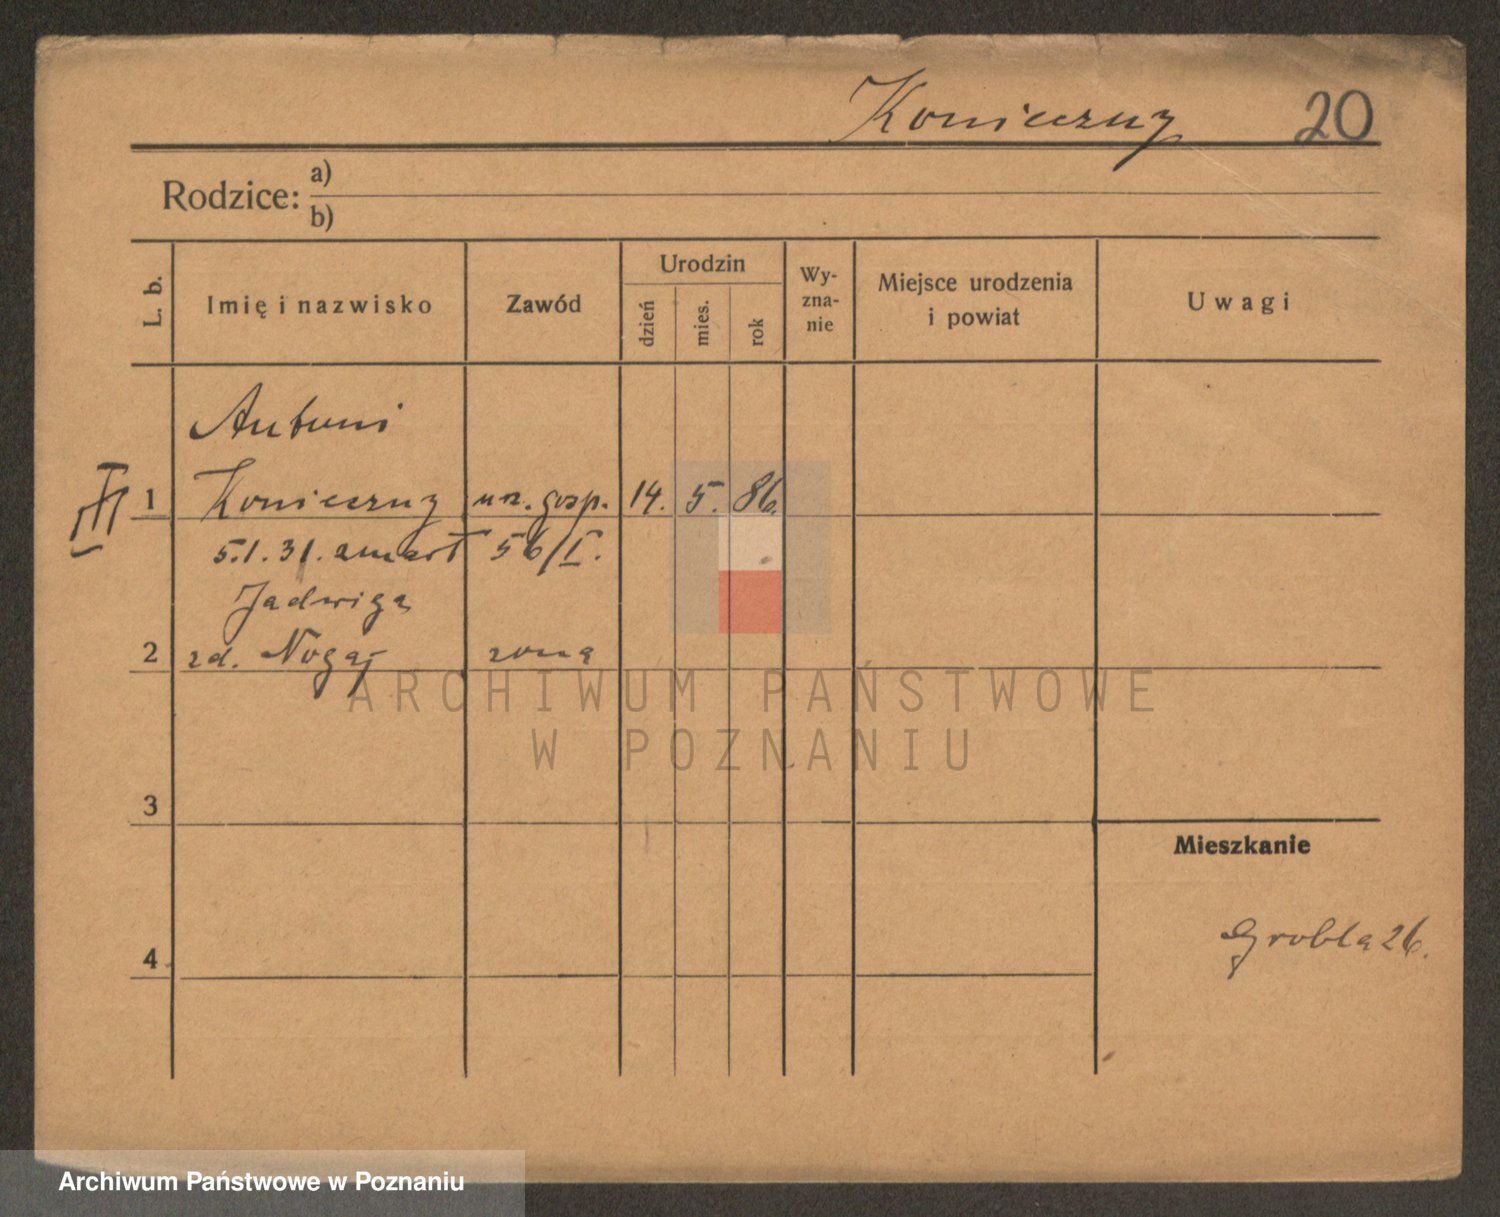 Konieczny 20
Rodzice: a)
b)
L. b.
Imię i nazwisko
Zawód
Urodzin
dzień
mies.
rok
Wy-
zna-
nie
Miejsce urodzenia
i powiat
Uwagi
Antoni
III 1 Konieczny urz. gosp. 14. 5. 86.
5.1.31. zmarł 56/I.
Jadwiga
2 zd. Nogaj żona
ARCHIWUM PAŃSTWOWE
W POZNANIU
3
Mieszkanie
Grobla 26.
4
Archiwum Państwowe w Poznaniu